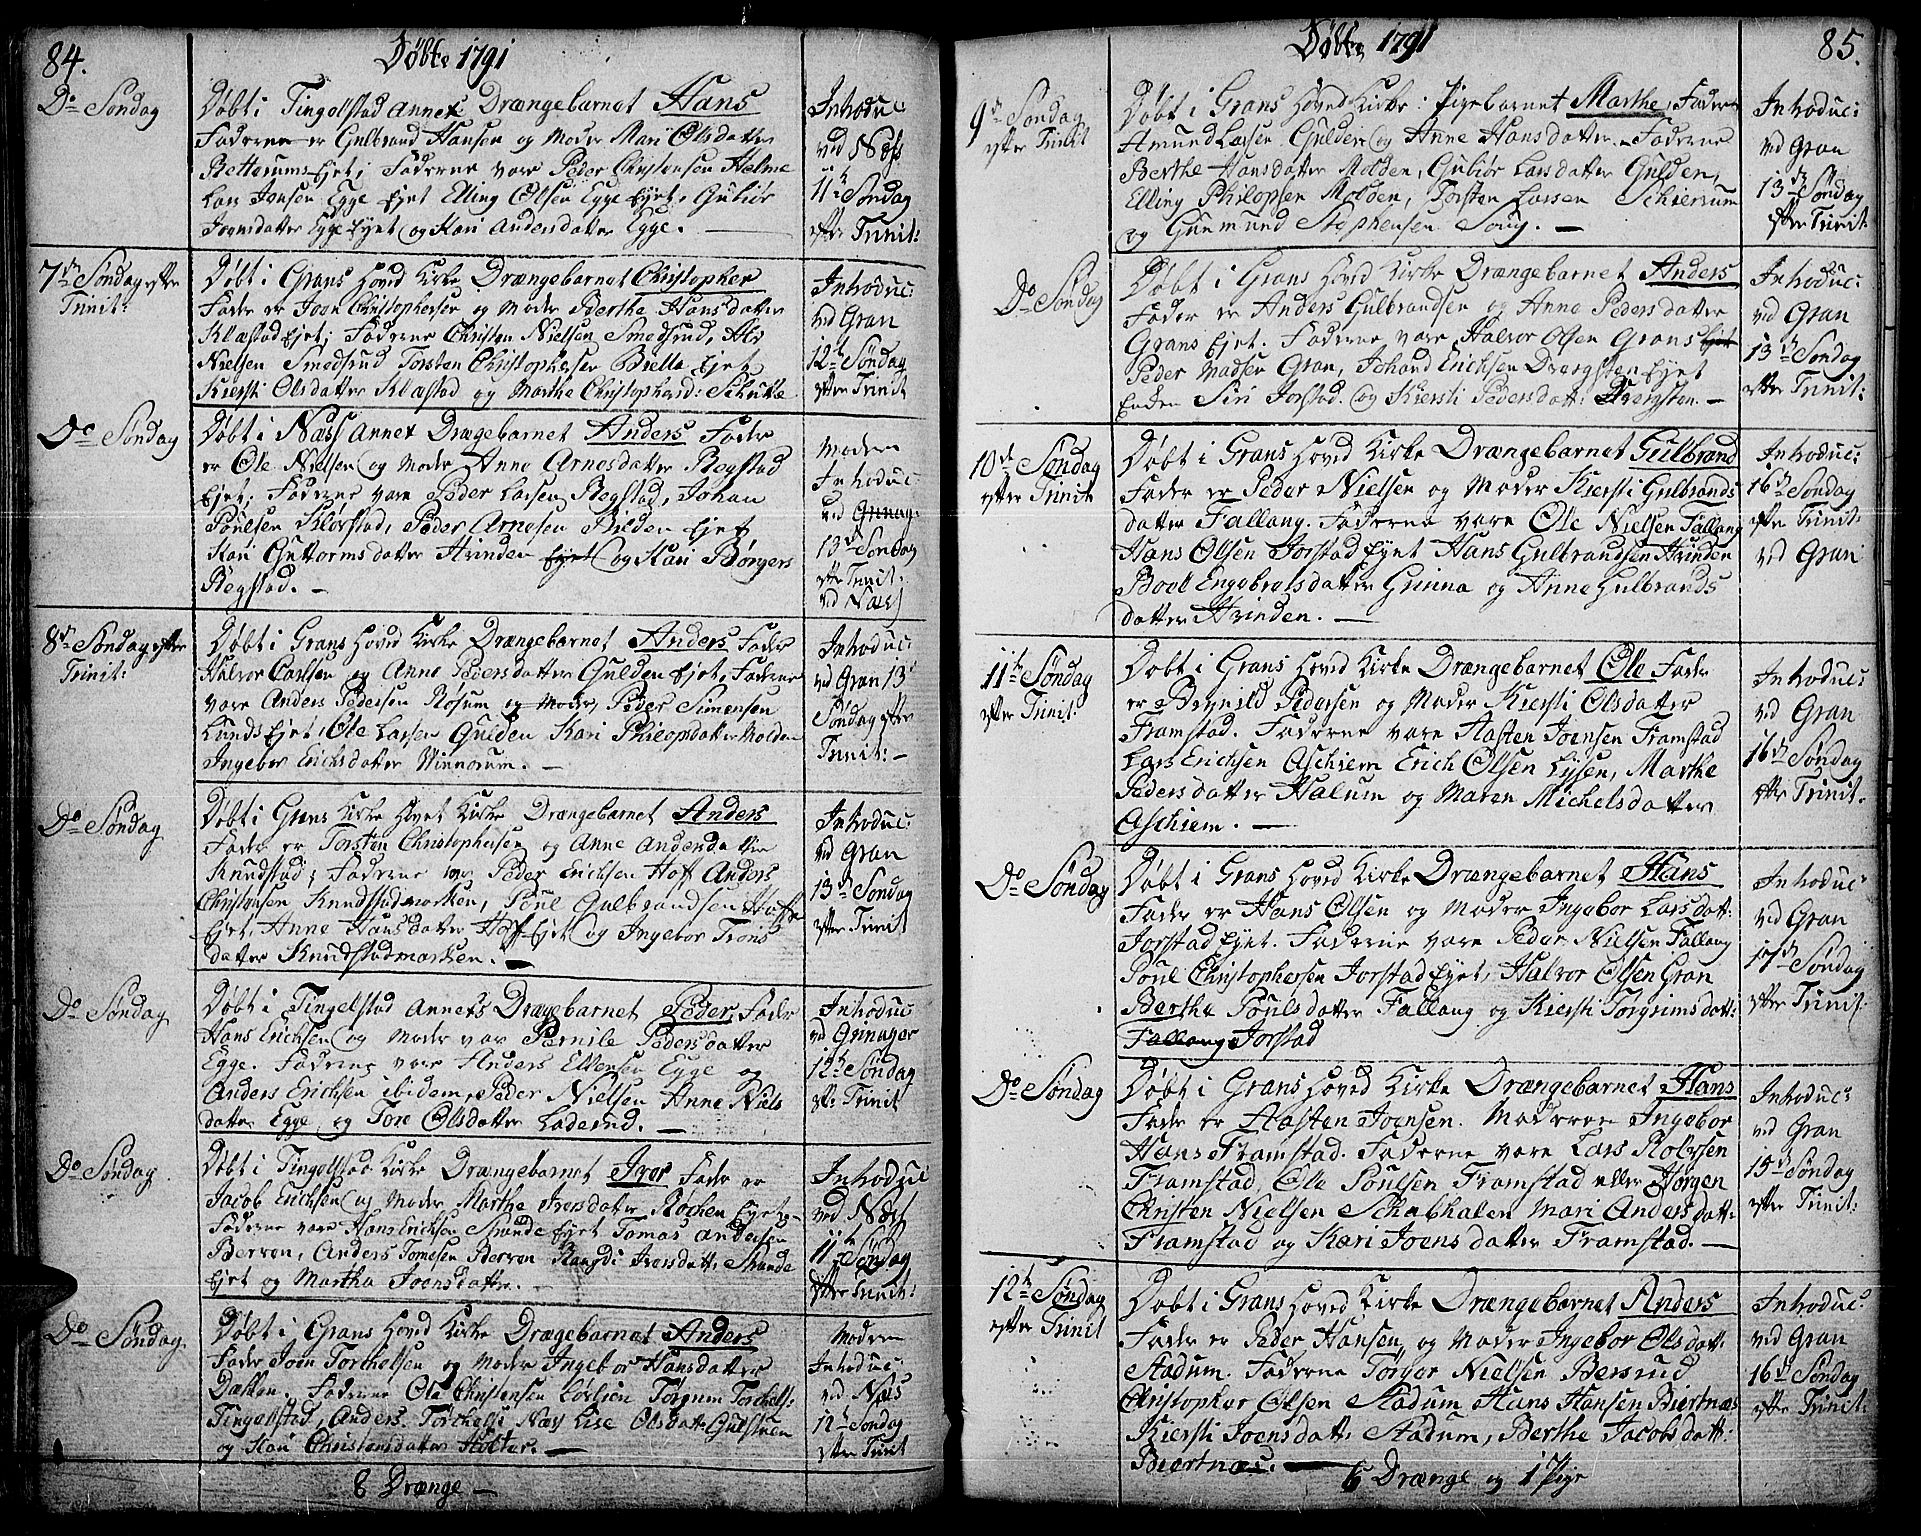 84.
Døbte 1791
Do Søndag
Døbt i Tingelstad Annex Drængebarnet Hans
Faderne er Gulbrand Hansen og Moder Mari Olsdatter
Betterums Ejet; Fadderne vare Peder Christensen Helme
Lars Jensen Egge Ejet Elling Olsen Egge Ejet, Guliør
Joensdatter Egge Ejet og Kari Andersdatter Egge. —
Introduc
ved Næss
11te Søndag
efter Trinit:
7de Søndag efter
Trinit:
Døbt i Grans Hoved Kirke Drængebarnet Christopher
Fader er Joen Christophersen og Moder Berthe Hansdatter
Klæstad Ejet; Fadderne Christen Nielsen Smedsrud, Ols
Nielsen Smedsrud Torsten Christophersen Bielle Ejet
Kiersti Olsdatter Klæstad og Marthe Christophersd: Schutte
Introduc:
ved Gran
12te Søndag
efter Trinit
Do Søndag
Døbt i Næss Annex Drægebarnet Anders Fader
er Ole Nielsen og Moder Anne Arnesdatter Regstad
Ejet; Fadderne vare Peder Larsen Regstad, Johan
Poulsen Kløvstad, Peder Arnesen Bilden Ejet,
Kari Guttormsdatter Hvinden Ejet og Kari Børgers
Regstad. —
Moderen
Introduc
ved Grinag:
13de Søndag
efter Trinit:
ved Næss
8de Søndag efter
Trinit:
Døbt i Grans Hoved Kirke Drængebarnet Anders Fader
Halvor Carlsen og Anne Pedersdatter Gulden Ejet, Fadderne
vare Anders Pedersen Røsum og Moder, Peder Simensen
Lunds Ejet, Ole Larsen Gulden Kari Philopsdatter Molden
Ingebor Erichsdatter Vinnorum. —
Introduc:
ved Gran 13de
Søndag efter
Trinit: —
Do Søndag
Døbt i Grans Kirke Hovet Kirke Drængebarnet Anders
Fader er Torsten Christophersen og Anne Andersdatter
Knudstad; Fadderne var Peder Erichsen Hoff Anders
Christensen Knudstadmarken, Poul Gulbrandsen Hoffs
Ejet, Anne Hansdatter Hoff Ejet og Ingebor Trons
datter Knudstadmarken. —
Introduc:
ved Gran
13de Søndag
efter Trinit
Do Søndag
Døbt i Tingelstad Annexs Drægebarnet Peder, Fader
Hans Erichsen og Moder var Pernile Pedersdatter
Egge. Fadderne vare Anders Ellensen Egge og
Anders Erichsen ibidem, Peder Nielsen Anne Niels
datter Egge, og Tore Olsdatter Laderud. —
Introduc
ved Grinager
12te Søndag
eft: Trinit
Do Søndag
Døbt i Tingelstad Kirke Drængebarnet Iver Fader er
Jacob Erichsen og Moder Marthe Iversdatter Røchen Ejet.
Fadderne vare Hans Erichsen Skande Ejet Tomas Andersen
Berven, Anders Tomesen Berven Rangdi Iversdatt: Skande
Ejet og Martha Joensdatter. —
Introduc
ved Næss
11te Søndag
efter Trinit:
Do Søndag
Døbt i Grans Hoved Kirke Drægebarnet Anders
Fader Joen Torchelsen og Moder Ingebor Hansdatter
Dækken. Fadderne Ole Christensen Torchels:
Tingelstad, Anders Torchelse Næss Lise Olsdatt:
og Kari Christensdatter Holter. —
Moderen
Introduc:
ved Næs
12te Søndag
efter Trinit
8 Drænge —
Døbte 1791
85.
9de Søndag
efter Trinit
Døbt i Grans Hoved Kirke: Pigebarnet Marthe, Fader
Amund Larsen Gulden og Anne Hansdatter. Fadderne
Berthe Hansdatter Molden, Guliør Larsdatter Gulden,
Elling Philopsen Molden, Torsten Larsen Schierrum
og Gunmund Stephensen Soug. —
Introduc:
ved Gran
13de Søndag
efter Trinit:
Do Søndag
Døbt i Grans Hoved Kirke Drængebarnet Anders
Fader er Anders Gulbrandsen og Anne Pedersdatter
Grans Ejet. Fadderne vare Halvor Olsen Grans Ejet
Peder Madsen Gran, Johand Erichsen Dvergsten Ejet
Enken Siri Jorstad og Kiersti Pedersdatt: Dvergsten. —
Introduc:
ved Gran
13de Søndag
efter Trinit:
10de Søndag
efter Trinit
Døbt i Grans Hoved Kirke Drængebarnet Gulbrand
Fader er Peder Nielsen og Moder Kiersti Gulbrands
datter Fallang. Fadderne vare Ole Nielsen Fallang
Hans Olsen Jorstad Ejet Hans Gulbrandsen Hvinden
Boel Engebretsdatter Grinna og Anne Gulbrands
datter Hvinden. —
Introduc:
16de Søndag
efter Trinit:
ved Gran
11te Søndag
efter Trinit:
Døbt i Grans Hoved Kirke Drængebarnet Ole Fader
er Brynild Pedersen og Moder Kiersti Olsdatter
Framstad. Fadderne vare Hasten Joensen Framstad
Lars Erichsen Aschiem Erich Olsen Lysen, Marthe
Pedersdatter Halum og Maren Michelsdatter
Aschiem. —
Introduc:
ved Gran
16de Søndag
efter Trinit.
Do Søndag
Døbt i Grans Hoved Kirke Drængebarnet Hans
Fader er Hans Olsen og Moder Ingebor Larsdatt:
Jorstad Ejet. Fadderne vare Peder Nielsen Fallang
Poul Christophersen Jorstad Ejet, Halvor Olsen Gran
Berthe Poulsdatter Fallang og Kiersti Torgrimsdatt:
Fallang Jorstad
Introduc:
ved Gran
17de Søndag
efter Trinit:
Do Søndag
Døbt i Grans Hoved Kirke Drængebarnet Hans
Fader er Hasten Joensen. Moderen Ingebor
Hans Framstad. Fadderne vare Lars Rolvsen
Framstad, Ole Poulsen Framstad eller Horgen
Christen Nielsen Schabhalen Mari Andersdatt:
Framstad og Kari Joensdatter Framstad. —
Introduc:
ved Gran
15de Søndag
efter Trinit:
12te Søndag
efter Trinit
Døbt i Grans Hoved Kirke Drængebarnet Anders
Fader er Peder Hansen, og Moder Ingebor Olsdatt:
Stadum. Fadderne Torger Nielsen Bersrud
Christopher Olsen Stadum Hans Hansen Biertnæs
Kiersti Joensdatter Stadum, Berthe Jacobsdatt:
Biertnæs. —
Introduc:
ved Gran
16de Søndag
efter Trinit:
6 Drænge og 1 Pige